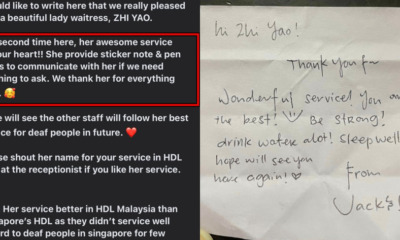 uld like to write here that we really pleased
a beautiful lady waitress, ZHI YAO.
second time here, her awesome service
your heart!! She provide sticker note & pen
s to communicate with her if we need
hing to ask. We thank her for everything
. 🥰
e will see the other staff will follow her best
ce for deaf people in future. ❤️
se shout her name for your service in HDL
at the receptionist if you like her service.
Her service better in HDL Malaysia than
apore's HDL as they didn't service well
rd to deaf people in singapore for few
Hi Zhi Yao!
Thank you f~
Wonderful service! You are
the best! Be strong!
drink water alot! Sleep well
hope will see you
here again!
From
Jacks!